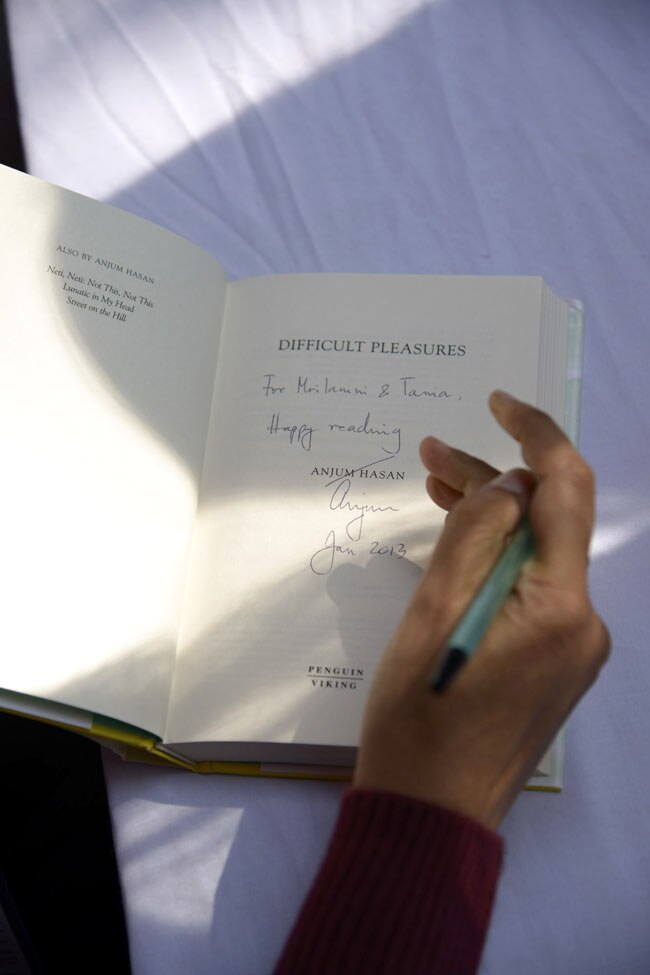 ALSO BY ANJUM HASAN
Neti, Neti: Not This, Not This
Lunatic in My Head
Street on the Hill
DIFFICULT PLEASURES
For & Tania,
Happy reading
ANJUM HASAN
Anjum
Jan 2013
PENGUIN
VIKING